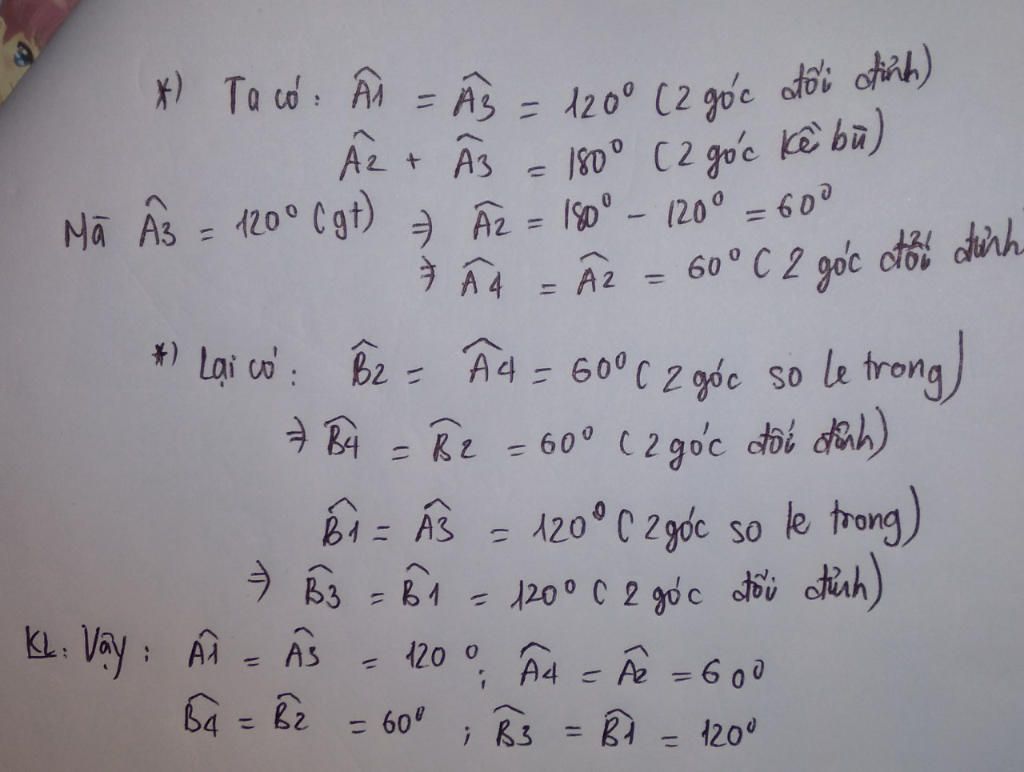 *) Ta có: Â1 = Â3 = 120° (2 góc đối đỉnh)
Â2 + Â3 = 180° (2 góc kề bù)
Mà Â3 = 120° (gt) ⇒ Â2 = 180° - 120° = 60°
⇒ Â4 = Â2 = 60° (2 góc đối đỉnh
*) Lại có: B̂2 = Â4 = 60° (2 góc so le trong)
⇒ B̂4 = B̂2 = 60° (2 góc đối đỉnh)
B̂1 = Â3 = 120° (2 góc so le trong)
⇒ B̂3 = B̂1 = 120° (2 góc đối đỉnh)
KL: Vậy: Â1 = Â3 = 120°; Â4 = Â2 = 60°
B̂4 = B̂2 = 60°; B̂3 = B̂1 = 120°